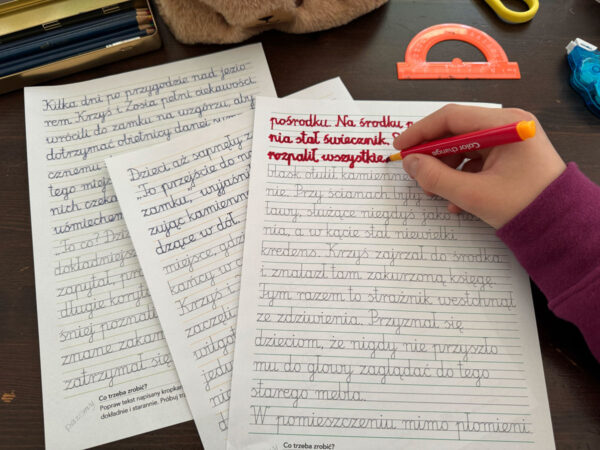 Kilka dni po przygodzie nad jezio-
rem Krzyś i Zosia pełni ciekawości
wrócili do zamku na wzgórzu, aby
dotrzymać obietnicy danej
cznemu
tego miejs
nich czeka
uśmiechem
„To co? Dzi
dokładniej
zapytał, 
długie kory
śniej poznali
znane zakam
zatrzymał się
Co trzeba zrobić?
Popraw tekst napisany kropkam
dokładnie i starannie. Próbuj
Dzieci aż sapnęły z
„To przejście do
zamku, wyjaśni
zując kamienn
dzące w dół.
miejsce, gdzi
kańcy w
Krzyś i
zaczęli
pośrodku. Na środku p
nia stał świecznik.
rozpalił wszystkie
blask stlił kamienn
nie. Przy ścianach były
ławy, służące niegdyś jako
nia, a w kącie stał niewielki
kredens. Krzyś zajrzał do środka
i znalazł tam zakurzoną księgę.
Tym razem to strażnik westchnął
ze zdziwienia. Przyznał się
dzieciom, że nigdy nie przyszło
mu do głowy zaglądać do tego
starego mebla.
W pomieszczeniu mimo płomieni
Co trzeba zrobić?
Color Change